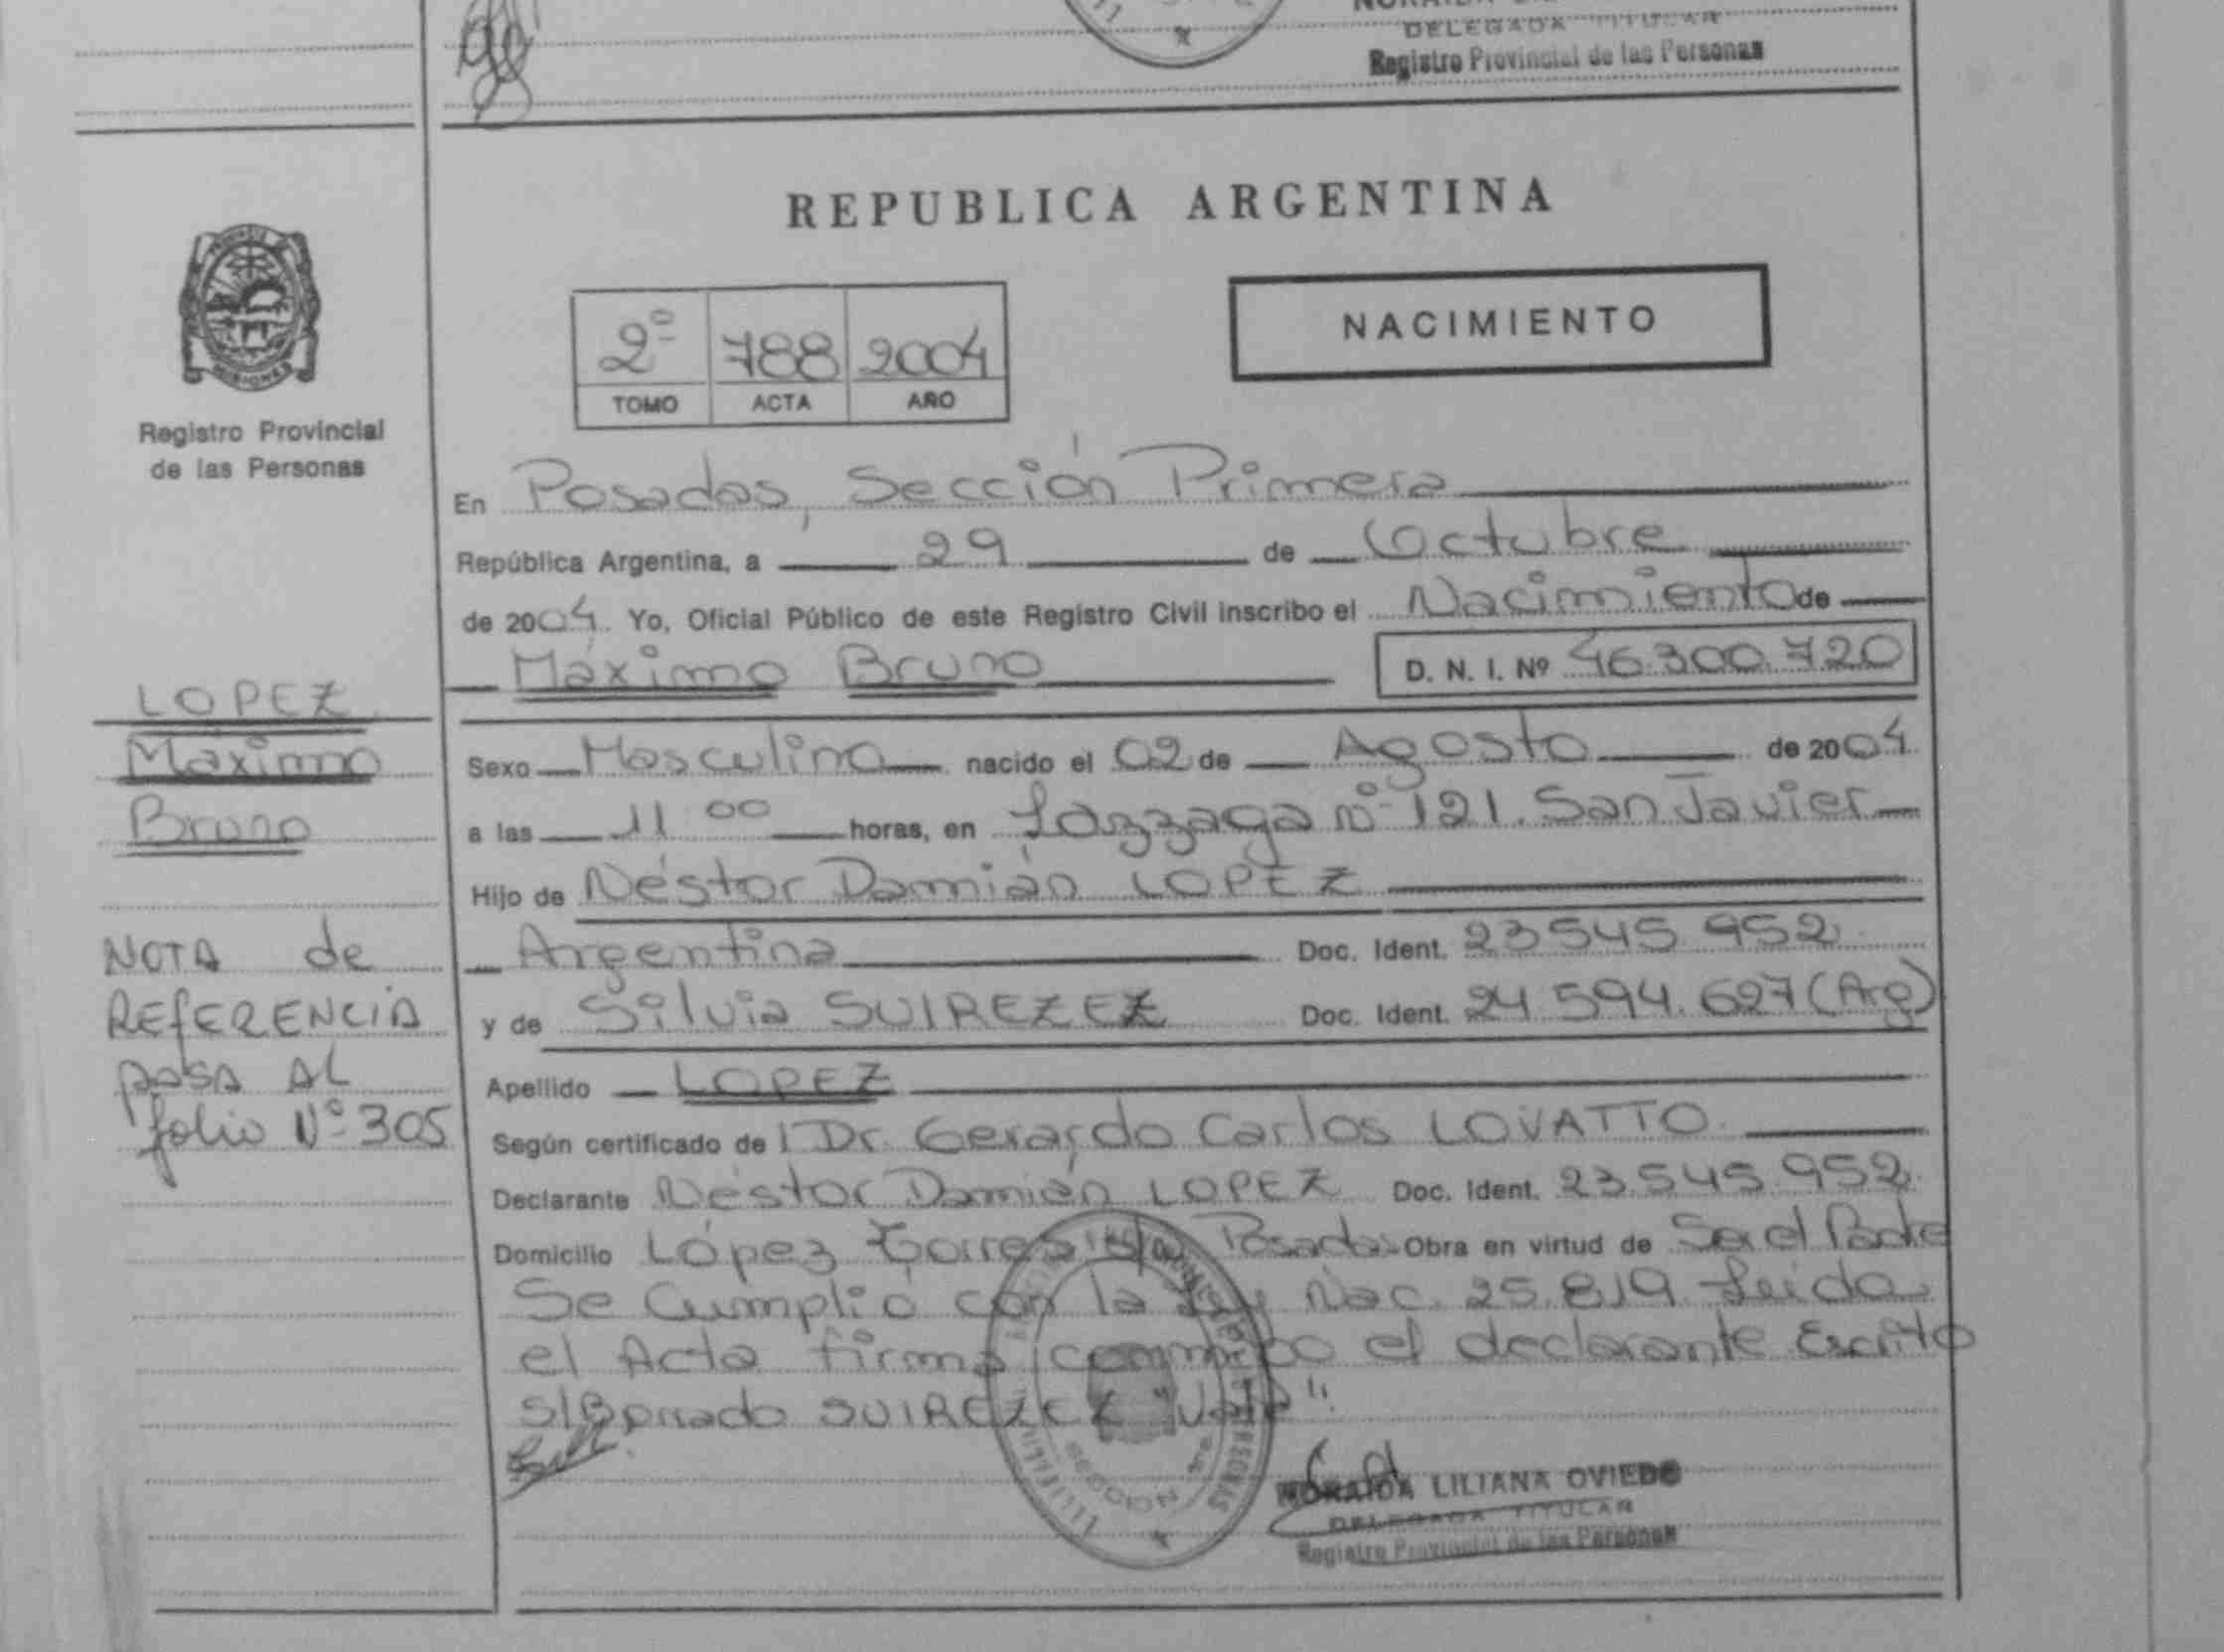 DELEGADA TITULAR
Registro Provincial de las Personas
REPUBLICA ARGENTINA
NACIMIENTO
2º 788 2004
TOMO ACTA AÑO
MISIONES
Registro Provincial
de las Personas
En Posadas, Sección Primera
República Argentina, a 29 de Octubre
de 2004. Yo, Oficial Público de este Registro Civil inscribo el Nacimiento de
Máximo Bruno D. N. I. Nº 46.300.720
LOPEZ
Máximo
Bruno
Sexo Masculino nacido el 02 de Agosto de 2004
a las 11 00 horas, en Lazzaga Nº 121. San Javier
Hijo de Néstor Damián LOPEZ
Argentina Doc. Ident. 23545952
y de Silvia SUIREZEZ Doc. Ident. 24.594.627 (Arg)
Apellido LOPEZ
Según certificado de l Dr. Gerardo Carlos LOVATTO
Declarante Néstor Damián LOPEZ Doc. Ident. 23.545.952
Domicilio López Torres Posadas Obra en virtud de Ser el Padre
Se Cumplió con la Ley Nac. 25.819 Leida
el Acta firma conmigo el declarante Escrito
S/Borrado SUIREZEZ "Vale"
NOTA de
REFERENCIA
PASA AL
folio Nº 305
SECCION 1ra
NORAIDA LILIANA OVIEDO
DELEGADA TITULAR
Registro Provincial de las Personas